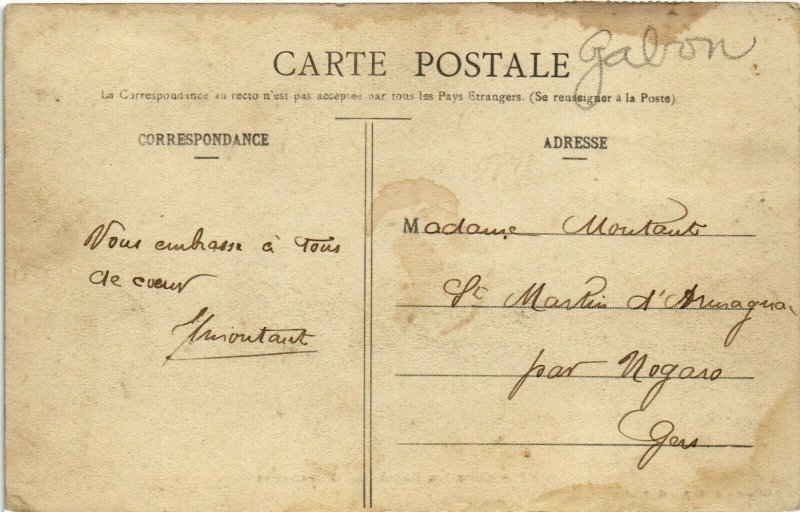 Gabon
CARTE POSTALE
La Correspondance au recto n'est pas acceptée par tous les Pays Etrangers. (Se renseigner à la Poste)
CORRESPONDANCE
ADRESSE
Vous embrasse à Tous
de cœur
Madame Montaut
St Martin d'Armagnac
par Nogaro
Gers